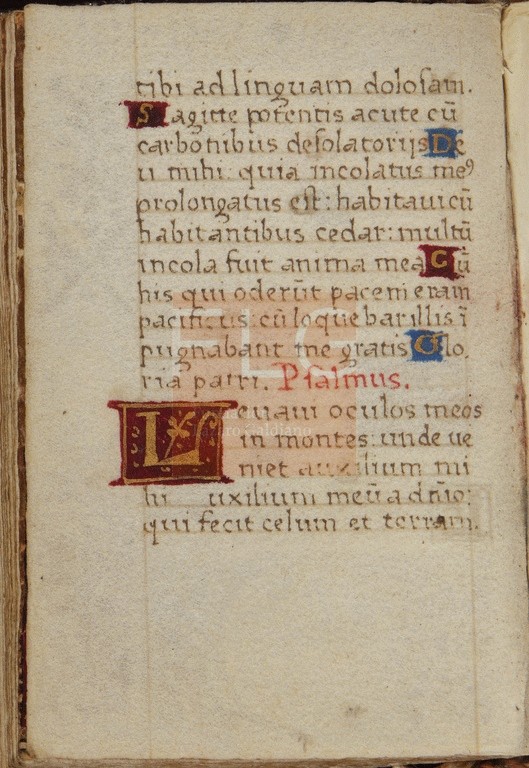 tibi ad linguam dolosam.
Sagitte potentis acute cũ
carbonibus desolatorijs De
u mihi: quia incolatus meꝰ
prolongatus est: habitaui cũ
habitantibus cedar: multũ
incola fuit anima mea Cũ
his qui oderũt pacem eram
pacificus: cũ loquebar illis ĩ
pugnabant me gratis Glo
ria patri. Psalmus.
Leuaui oculos meos
in montes: unde ue
niet auxilium mi
hi uxilium meũ a dño:
qui fecit celum et terram.